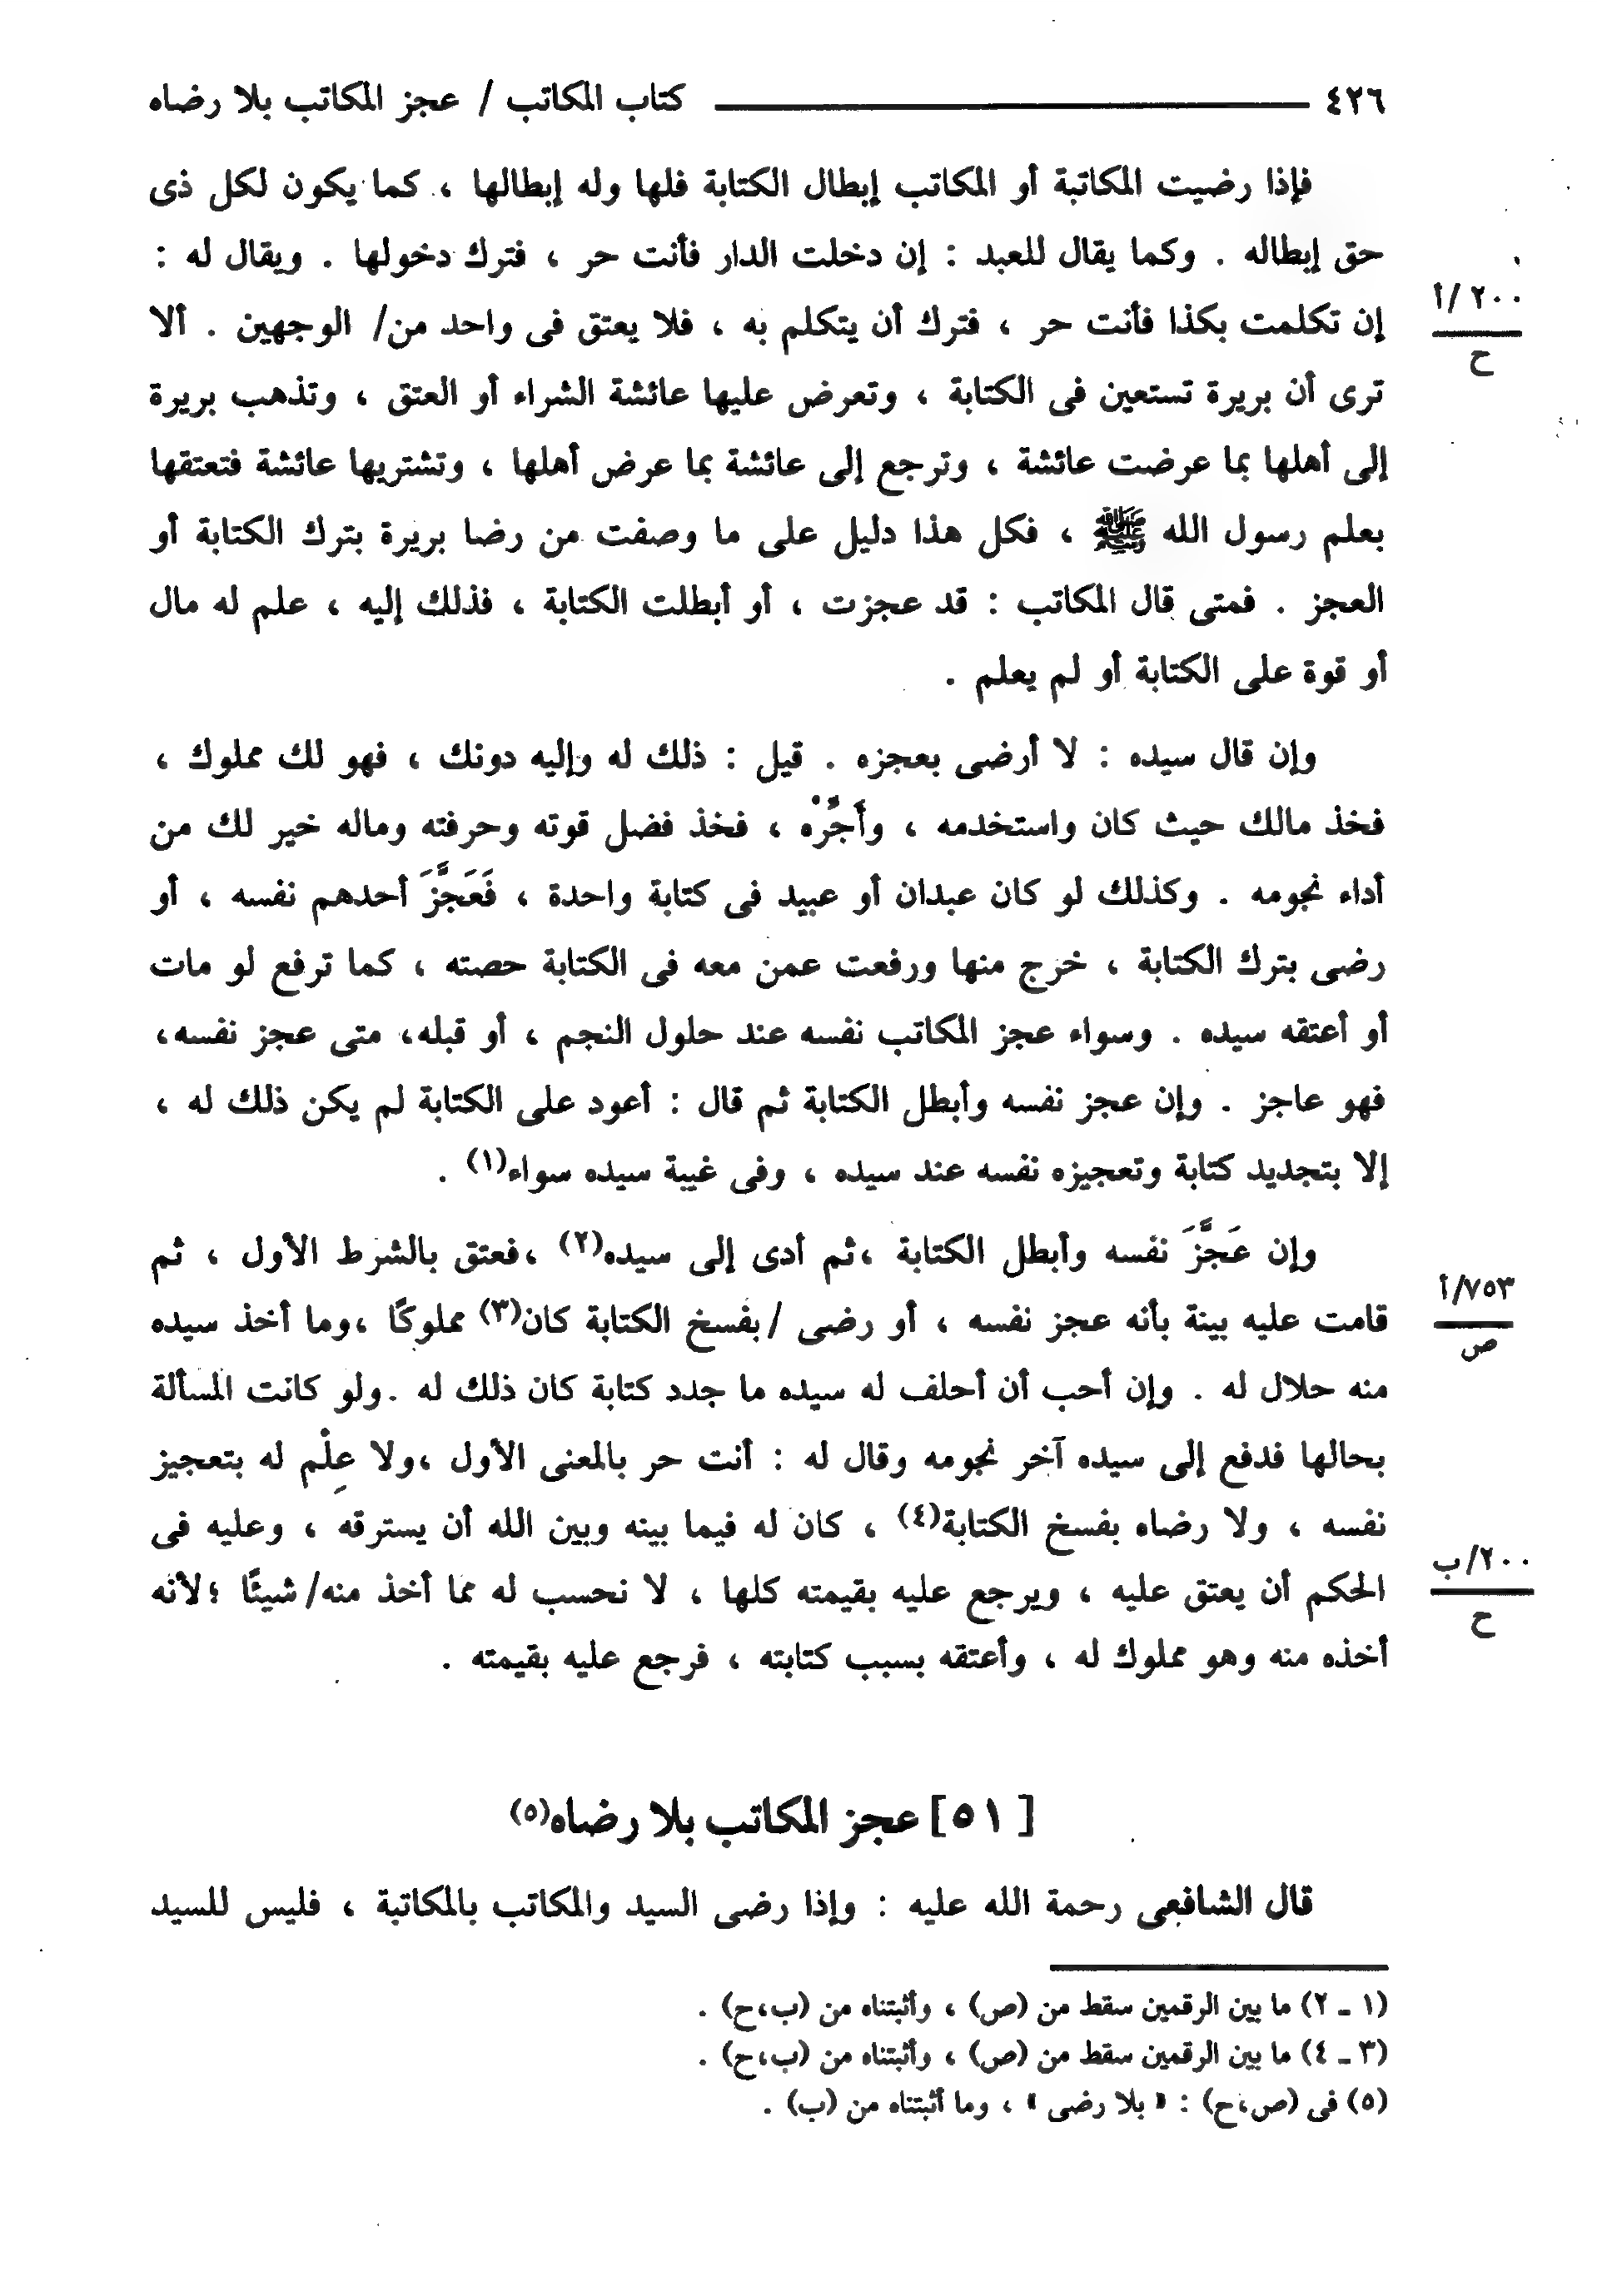 ٤٢٦ كتاب المكاتب / عجز المكاتب بلا رضاه
فإذا رضيت المكاتبة أو المكاتب إبطال الكتابة فلها وله إبطالها ، كما يكون لكل ذى
حق إبطاله . وكما يقال للعبد : إن دخلت الدار فأنت حر ، فترك دخولها . ويقال له :
إن تكلمت بكذا فأنت حر ، فترك أن يتكلم به ، فلا يعتق فى واحد من/ الوجهين . ألا
٢٠٠ /أ
ح
ترى أن بريرة تستعين فى الكتابة ، وتعرض عليها عائشة الشراء أو العتق ، وتذهب بريرة
إلى أهلها بما عرضت عائشة ، وترجع إلى عائشة بما عرض أهلها ، وتشتريها عائشة فتعتقها
بعلم رسول الله ﷺ ، فكل هذا دليل على ما وصفت من رضا بريرة بترك الكتابة أو
العجز . فمتى قال المكاتب : قد عجزت ، أو أبطلت الكتابة ، فذلك إليه ، علم له مال
أو قوة على الكتابة أو لم يعلم .
وإن قال سيده : لا أرضى بعجزه . قيل : ذلك له وإليه دونك ، فهو لك مملوك ،
فخذ مالك حيث كان واستخدمه ، وأَجِّرْه ، فخذ فضل قوته وحرفته وماله خير لك من
أداء نجومه . وكذلك لو كان عبدان أو عبيد فى كتابة واحدة ، فَعَجَّزَ أحدهم نفسه ، أو
رضى بترك الكتابة ، خرج منها ورفعت عمن معه فى الكتابة حصته ، كما ترفع لو مات
أو أعتقه سيده . وسواء عجز المكاتب نفسه عند حلول النجم ، أو قبله، متى عجز نفسه،
فهو عاجز . وإن عجز نفسه وأبطل الكتابة ثم قال : أعود على الكتابة لم يكن ذلك له ،
إلا بتجديد كتابة وتعجيزه نفسه عند سيده ، وفى غيبة سيده سواء(١) .
وإن عَجَّزَ نفسه وأبطل الكتابة ،ثم أدى إلى سيده(٢) ،فعتق بالشرط الأول ، ثم
قامت عليه بينة بأنه عجز نفسه ، أو رضى /بفسخ الكتابة كان(٣) مملوكًا ،وما أخذ سيده
٧٥٣/أ
ص
منه حلال له . وإن أحب أن أحلف له سيده ما جدد كتابة كان ذلك له .ولو كانت المسألة
بحالها فدفع إلى سيده آخر نجومه وقال له : أنت حر بالمعنى الأول ،ولا عِلْم له بتعجيز
نفسه ، ولا رضاه بفسخ الكتابة(٤) ، كان له فيما بينه وبين الله أن يسترقه ، وعليه فى
الحكم أن يعتق عليه ، ويرجع عليه بقيمته كلها ، لا نحسب له مما أخذ منه/ شيئًا ؛لأنه
٢٠٠/ب
ح
أخذه منه وهو مملوك له ، وأعتقه بسبب كتابته ، فرجع عليه بقيمته .
[ ٥١] عجز المكاتب بلا رضاه(٥)
قال الشافعى رحمة الله عليه : وإذا رضى السيد والمكاتب بالمكاتبة ، فليس للسيد
(١ ـ ٢) ما بين الرقمين سقط من (ص) ، وأثبتناه من (ب،ح) .
(٣ ـ ٤) ما بين الرقمين سقط من (ص) ، وأثبتناه من (ب،ح) .
(٥) فى (ص،ح) : « بلا رضى » ، وما أثبتناه من (ب) .